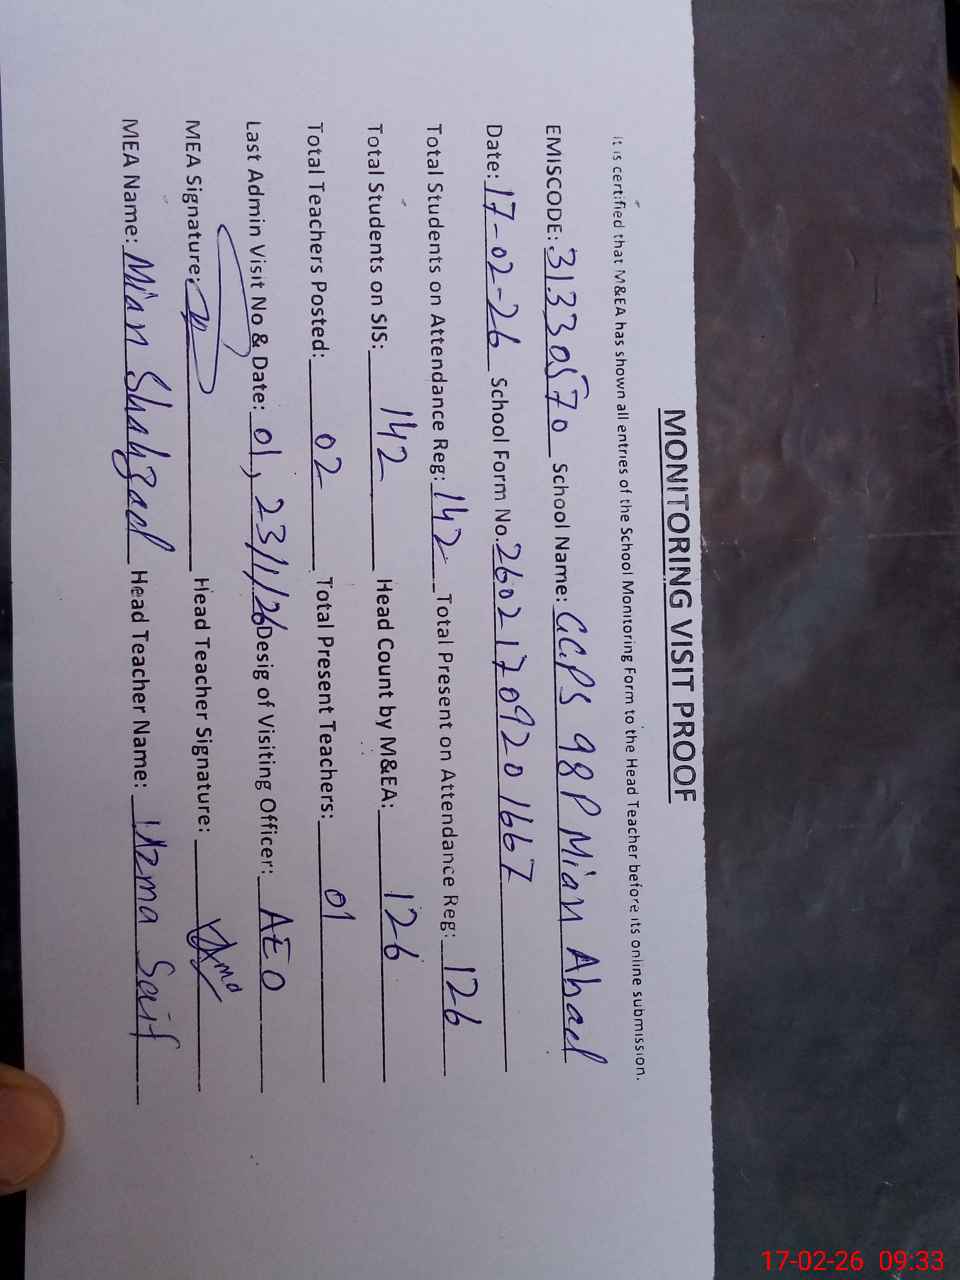 MONITORING VISIT PROOF
It is certified that M&EA has shown all entries of the School Monitoring Form to the Head Teacher before its online submission.
EMISCODE: 31330570 School Name: GGPS 98P Mian Ahad
Date: 17-02-26 School Form No. 26021709201667
Total Students on Attendance Reg: 142 Total Present on Attendance Reg: 126
Total Students on SIS: 142 Head Count by M&EA: 126
Total Teachers Posted: 02 Total Present Teachers: 01
Last Admin Visit No & Date: 01, 23/1/26 Desig of Visiting Officer: AEO
MEA Signature: Head Teacher Signature:
MEA Name: Mian Shahzad Head Teacher Name: Uzma Saif
17-02-26 09:33